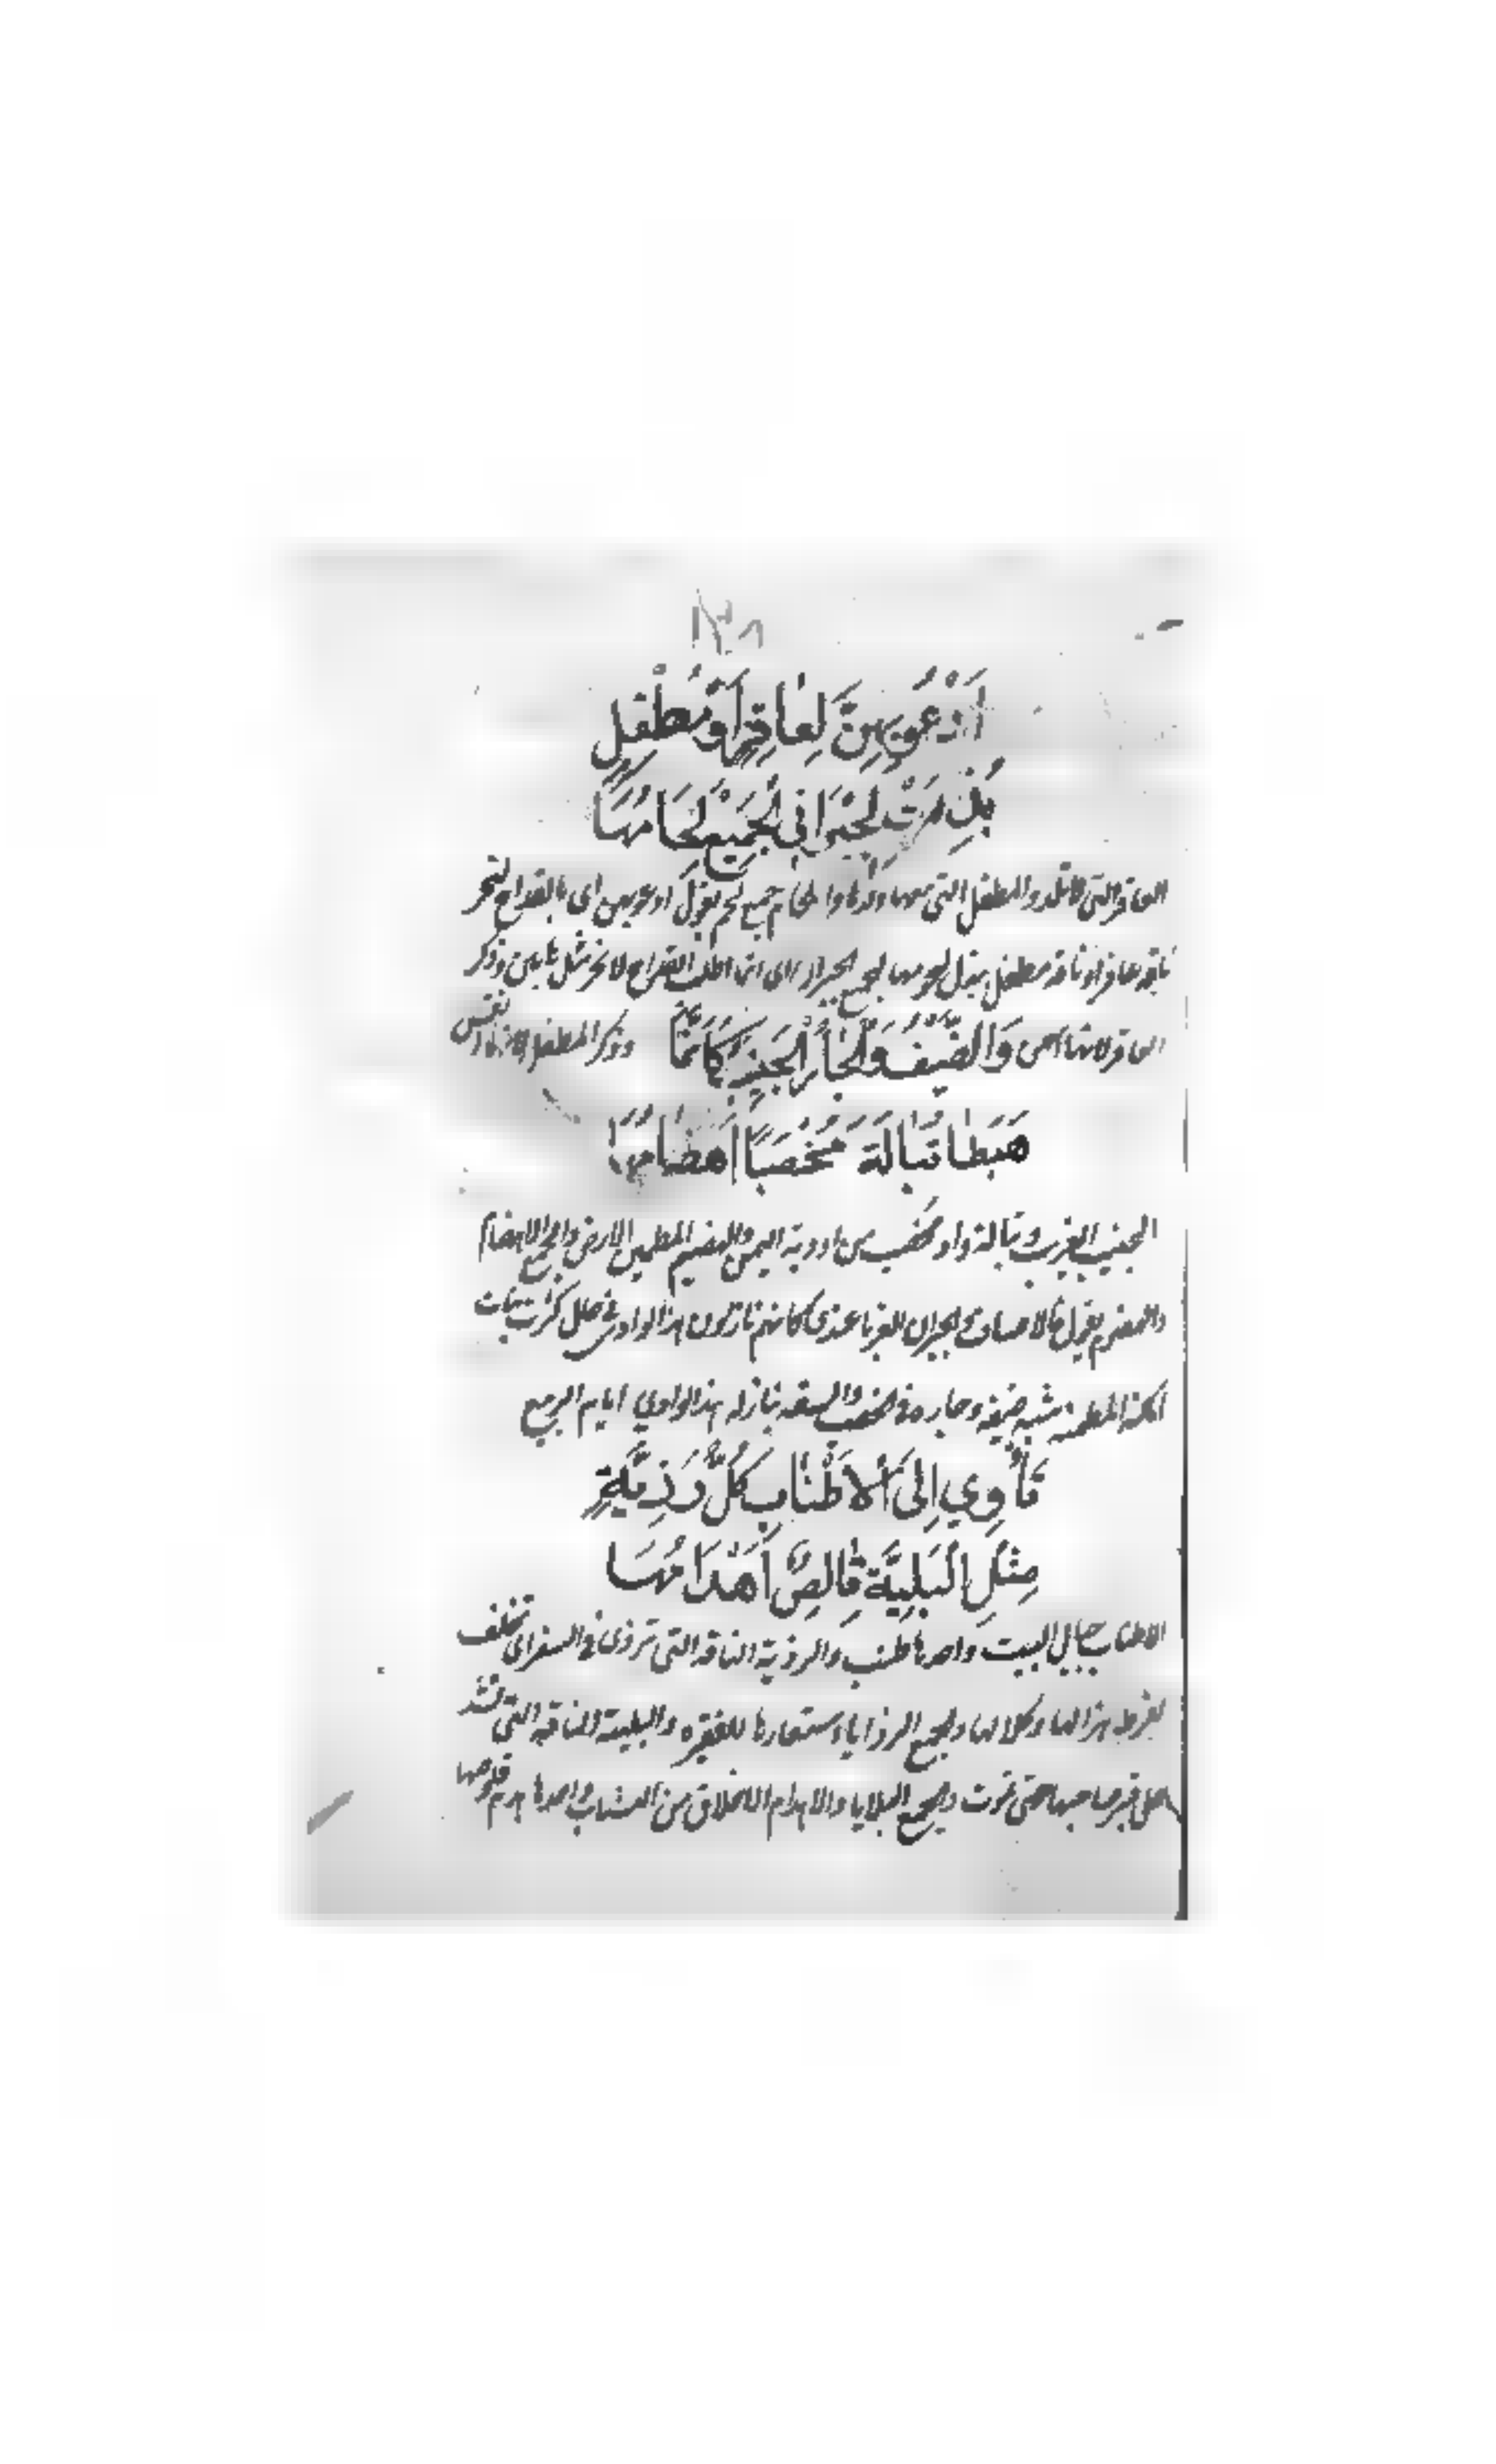 ١٣٨
اَدْعُو بِهِنَّ لِعَاقِرٍ اَوْ مُطْفِلٍ
بُذِلَتْ لِجِيْرَانِ الْجَمِيْعِ لِحَامُهَا
العاقر التي لا تلد والمطفل التي معها ولدها واللحام جمع لحم يقول ادعو بهن اى بالقداح لنحر
ناقة عاقر او ناقة مطفل يبذل لحومها لجميع الجيران اى انما اطلب القداح لانحر مثل هاتين وذكر
العاقر لانها اسمن وَالضَّيْفُ وَالْجَارُ الْجَنِيْبُ كَاَنَّمَا وذكر المطفل لانها انفس
هَبَطَا تَبَالَةَ مُخْصَبًا اَهْضَامُهَا
الجنيب الغريب وتبالة واد مخصب من اودية اليمن والهضيم المطمئن الارض والجمع الاهضام
والهضوم يقول فالاضياف والجيران الغرباء عندى كانهم نازلون هذا الوادى في حال كثرت نبات
امكنة المطمئنة شبه ضيفه وجاره في الخصب والسعة بنازل هذا الوادي ايام الربيع
تَأْوِي اِلَى الْاَطْنَابِ كُلُّ رَذِيَّةٍ
مِثْلِ الْبَلِيَّةِ قَالِصٌ اَهْدَامُهَا
الاطناب حبال البيت واحدها طنب والرذية الناقة التي ترذى في السفر اى تخلف
لفرط هزالها وكلالها والجمع الرذايا استعارها للفقيرة والبلية الناقة التي تشد
على قبر صاحبها حتى تموت والجمع البلايا والاهدام الاخلاق من الثياب واحدها هدم قلوصها